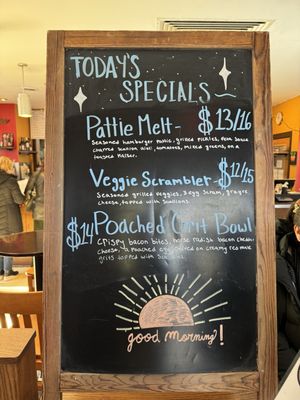 TODAY'S
SPECIALS
Pattie Melt - $13/16
Seasoned hamburger pattie, grilled pickles,
charred scallion aioli, tomatoes, mixed greens, on a
toasted Kaiser.
Veggie Scrambler - $12/15
Seasoned grilled veggies, 3 egg scram,
cheese, topped with Scallions.
$14 Poached Grit Bowl
Crispy bacon bits, horse radish bacon cheddar
cheese, & poached egg served on creamy
grits topped with Scallions
good morning!